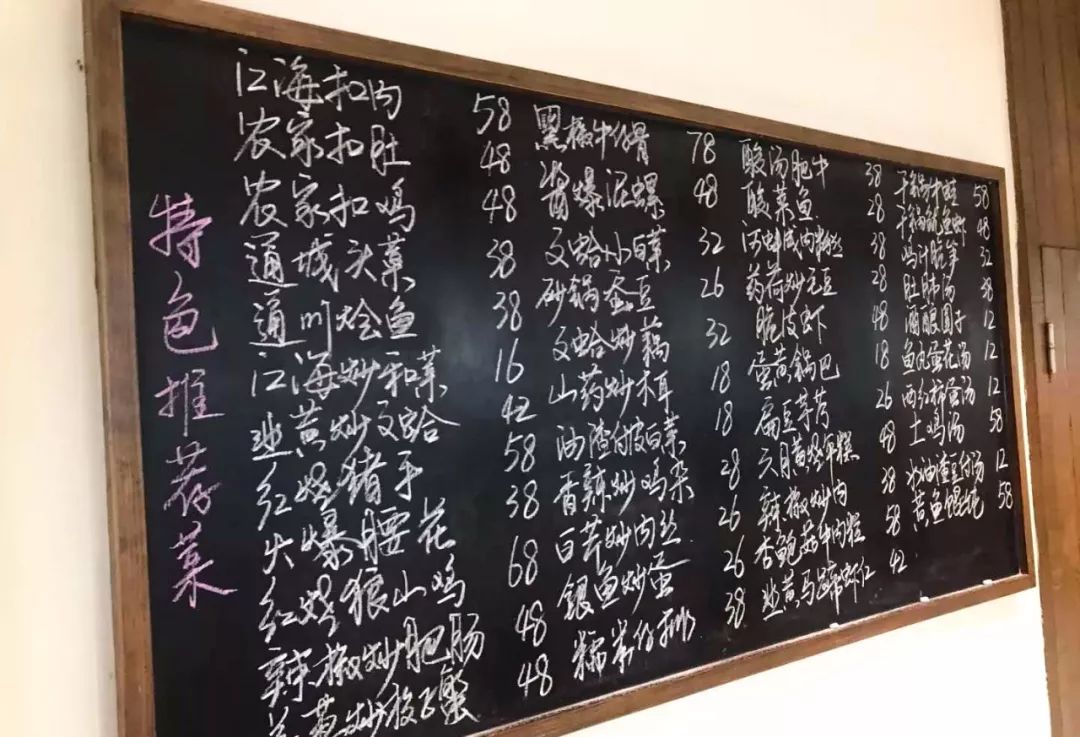 特色推荐菜
江海扣肉 58
农家扣肚 48
农家扣鸡 48
通城头菜 38
通州烩鱼 38
江海炒和菜 16
韭黄炒文蛤 42
红烧猪手 58
火爆腰花 38
红烧狼山鸡 68
辣椒炒肥肠 48
黄炒梭子蟹 48
黑椒牛仔骨 78
酱爆泥螺 48
文蛤小白菜 32
砂锅蚕豆 26
文蛤炒藕 32
山药炒木耳 18
油渣付皮白菜 18
香辣炒鸡杂 28
白芹炒肉丝 26
银鱼炒蛋 26
糯米仔排 38
酸汤肥牛 38
酸菜鱼 28
河蚌咸肉粉丝 38
药荷炒毛豆 28
脆皮虾 48
蛋黄锅巴 18
扁豆芋艿 26
六月黄烧年糕 48
辣椒炒肉 38
杏鲍菇牛肉粒 58
韭黄马蹄虾仁 42
干锅牛蛙 58
干锅鱿鱼虾 48
鸡汁脆笋 32
肚肺汤 38
酒酿圆子 12
鱼丸蛋花汤 12
西红柿蛋汤 12
土鸡汤 58
油渣豆付汤 12
黄鱼馄饨 58